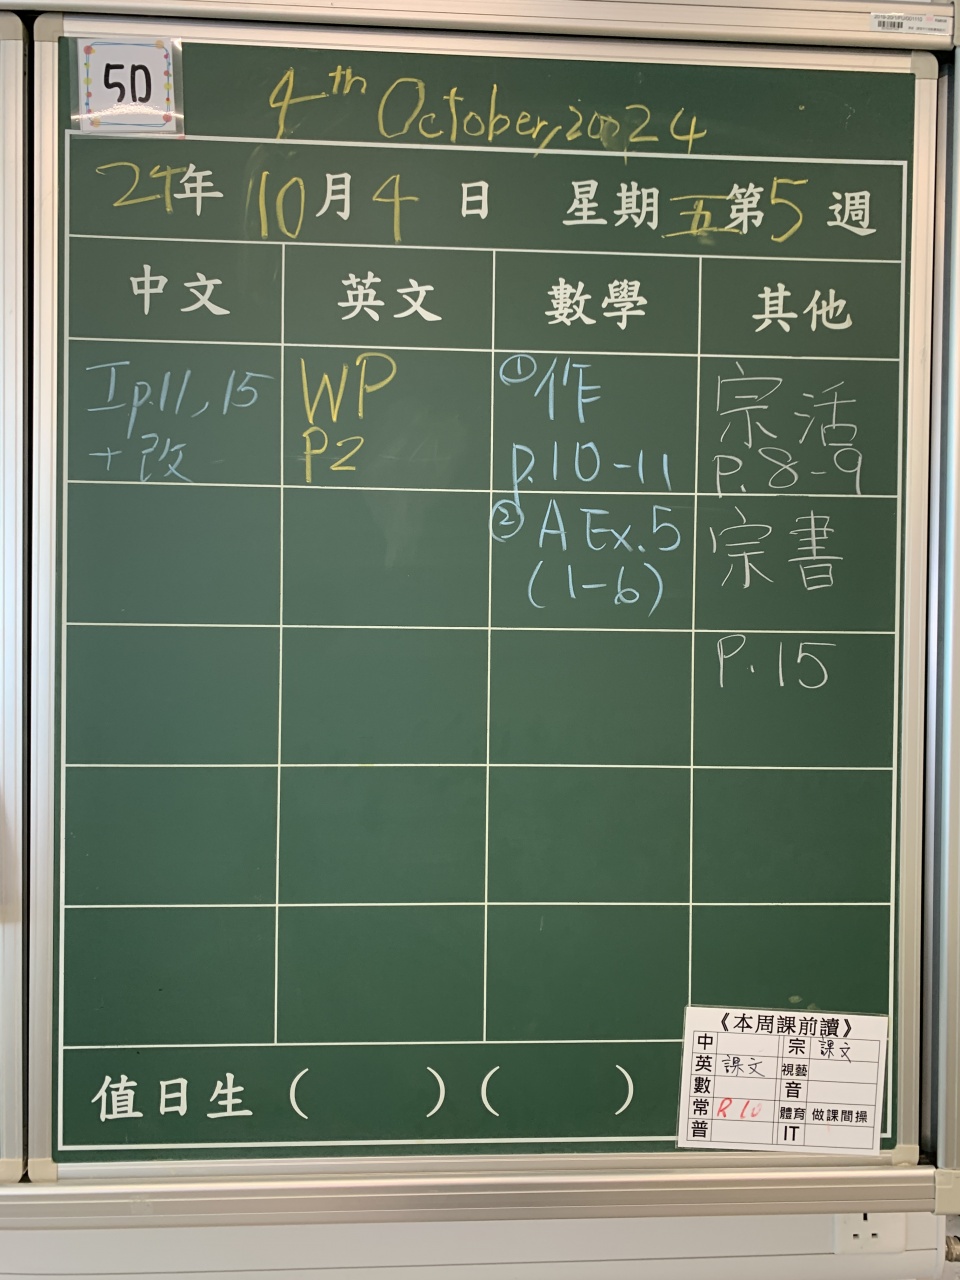 5D
4th October, 2024
24年10月4日 星期五第5週
中文 英文 數學 其他
I p.11, 15
+改
WP
P2
①作
p.10-11
宗活
p.8-9
②A Ex.5
(1-6)
宗書
P.15
值日生 ( ) ( )
《本周課前讀》
中 宗 課文
英 課文 視藝
數 音
常 R 10 體育 做課間操
普 IT